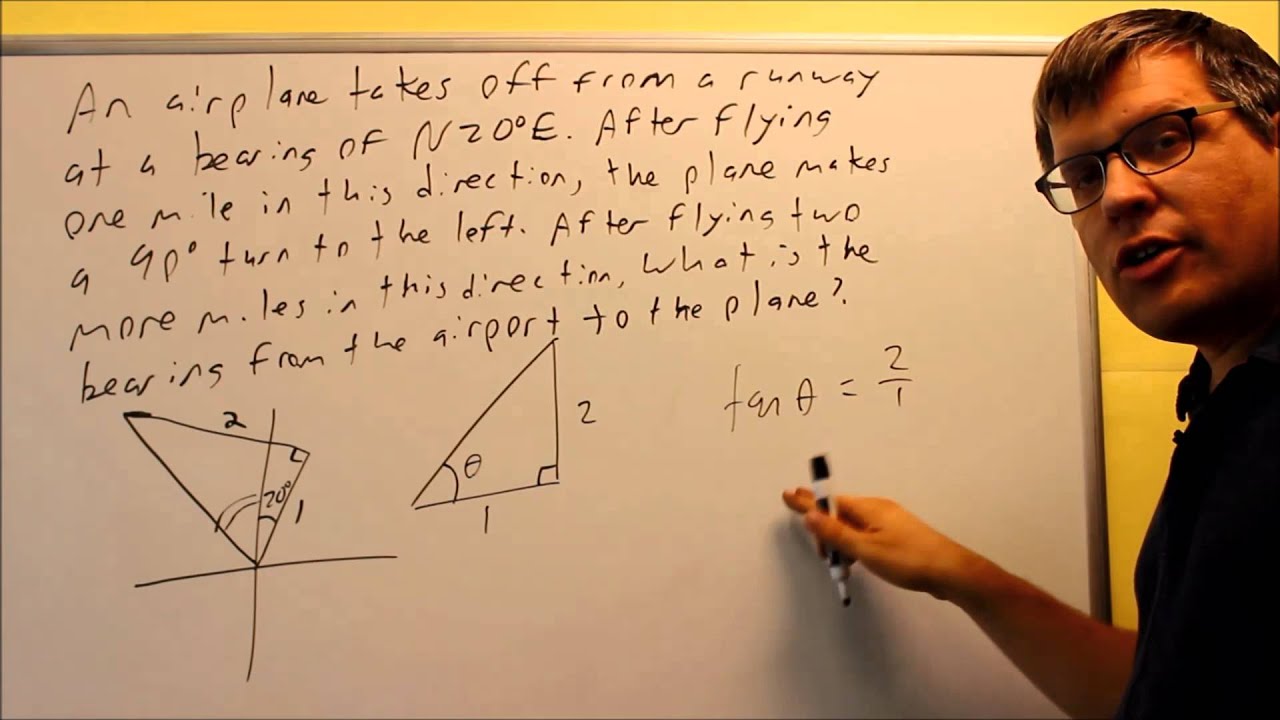 An airplane takes off from a runway
at a bearing of N20°E. After flying
one mile in this direction, the plane makes
a 90° turn to the left. After flying two
more miles in this direction, what is the
bearing from the airport to the plane?
2
20°
1
θ
2
1
tan θ = 2/1